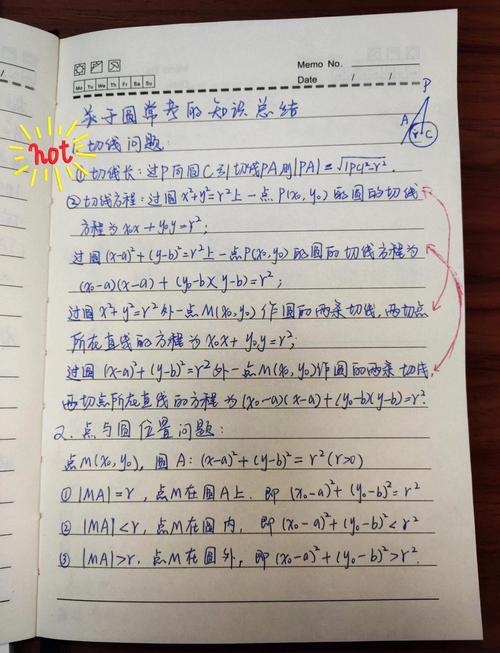 Memo No.
Mo Tu We Th Fr Sa Su
Date / /
关于圆常考的知识总结
P
A
r
C
hot
1.切线问题:
①切线长:过P向圆C引切线PA则|PA|=√|PC|²-r².
②切线方程:过圆x²+y²=r²上一点P(x₀,y₀)的圆的切线
方程为x₀x+y₀y=r²;
过圆(x-a)²+(y-b)²=r²上一点P(x₀,y₀)的圆的切线方程为
(x₀-a)(x-a)+(y₀-b)(y-b)=r²;
过圆x²+y²=r²外一点M(x₀,y₀)作圆的两条切线,两切点
所在直线的方程为x₀x+y₀y=r²;
过圆(x-a)²+(y-b)²=r²外一点M(x₀,y₀)作圆的两条切线,
两切点所在直线的方程为(x₀-a)(x-a)+(y₀-b)(y-b)=r².
2.点与圆位置问题:
点M(x₀,y₀),圆A:(x-a)²+(y-b)²=r²(r>0)
①|MA|=r,点M在圆A上.即(x₀-a)²+(y₀-b)²=r²
②|MA|<r,点M在圆内,即(x₀-a)²+(y₀-b)²<r²
③|MA|>r,点M在圆外,即(x₀-a)²+(y₀-b)²>r².